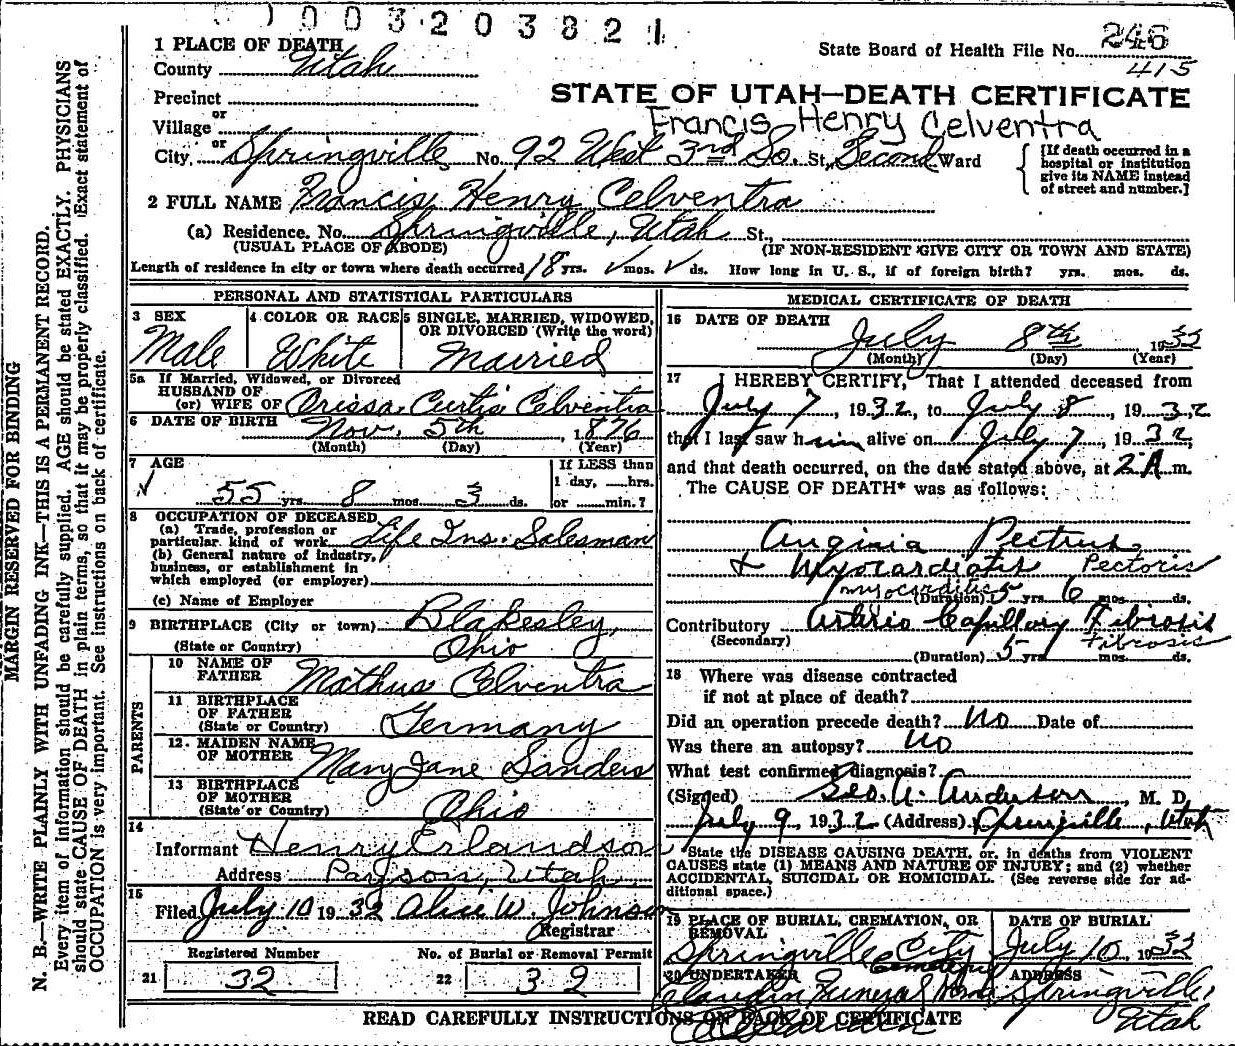 003203821
State Board of Health File No. 246
415
STATE OF UTAH—DEATH CERTIFICATE
Francis Henry Celventra
1 PLACE OF DEATH
County Utah
Precinct
or
Village
or
City Springville No. 92 West 3rd So. St., Second Ward
[If death occurred in a hospital or institution give its NAME instead of street and number.]
2 FULL NAME Francis Henry Celventra
(a) Residence. No. Springville, Utah St.,
(USUAL PLACE OF ABODE) (IF NON-RESIDENT GIVE CITY OR TOWN AND STATE)
Length of residence in city or town where death occurred 18 yrs. mos. ds. How long in U. S., if of foreign birth? yrs. mos. ds.
PERSONAL AND STATISTICAL PARTICULARS
3 SEX
Male
4 COLOR OR RACE
White
5 SINGLE, MARRIED, WIDOWED,
OR DIVORCED (Write the word)
Married
5a If Married, Widowed, or Divorced
HUSBAND OF
(or) WIFE OF Orissa Curtis Celventra
6 DATE OF BIRTH Nov. 5th, 1876
(Month) (Day) (Year)
7 AGE
55 yrs. 8 mos. 3 ds.
If LESS than
1 day, hrs.
or min.?
8 OCCUPATION OF DECEASED
(a) Trade, profession or
particular kind of work Life Ins. Salesman
(b) General nature of industry,
business, or establishment in
which employed (or employer)
(c) Name of Employer
9 BIRTHPLACE (City or town) Blakesley,
(State or Country) Ohio
PARENTS
10 NAME OF
FATHER Mathus Celventra
11 BIRTHPLACE
OF FATHER
(State or Country) Germany
12. MAIDEN NAME
OF MOTHER Mary Jane Sanders
13 BIRTHPLACE
OF MOTHER
(State or Country) Ohio
14
Informant Henry Erlandson
Address Payson, Utah
15
Filed July 10 1932 Alice W. Johnson
Registrar
Registered Number
21 32
No. of Burial or Removal Permit
22 39
MEDICAL CERTIFICATE OF DEATH
16 DATE OF DEATH
July 8th 1932
(Month) (Day) (Year)
17 I HEREBY CERTIFY, That I attended deceased from
July 7, 1932, to July 8, 1932
that I last saw him alive on July 7, 1932,
and that death occurred, on the date stated above, at 2 A m.
The CAUSE OF DEATH* was as follows:
Anginia Pectrus
+ Myocardiatis Pectoris
myocarditis
(Duration) 5 yrs. 6 mos. ds.
Contributory Arterio Capillary Fibrosis
(Secondary) Fibrosis
(Duration) 5 yrs. mos. ds.
18 Where was disease contracted
if not at place of death?
Did an operation precede death? No Date of
Was there an autopsy? No
What test confirmed diagnosis?
(Signed) Geo. A. Anderson, M. D.
July 9, 1932 (Address) Springville, Utah
State the DISEASE CAUSING DEATH, or, in deaths from VIOLENT
CAUSES state (1) MEANS AND NATURE OF INJURY; and (2) whether
ACCIDENTAL, SUICIDAL OR HOMICIDAL. (See reverse side for additional space.)
19 PLACE OF BURIAL, CREMATION, OR
REMOVAL
Springville City
Cemetery
DATE OF BURIAL
July 10, 1932
20 UNDERTAKER
Claudin Funeral Home
ADDRESS
Springville,
Utah
READ CAREFULLY INSTRUCTIONS ON BACK OF CERTIFICATE
MARGIN RESERVED FOR BINDING
N. B.—WRITE PLAINLY WITH UNFADING INK—THIS IS A PERMANENT RECORD.
Every item of information should be carefully supplied. AGE should be stated EXACTLY. PHYSICIANS
should state CAUSE OF DEATH in plain terms, so that it may be properly classified. Exact statement of
OCCUPATION is very important. See instructions on back of certificate.